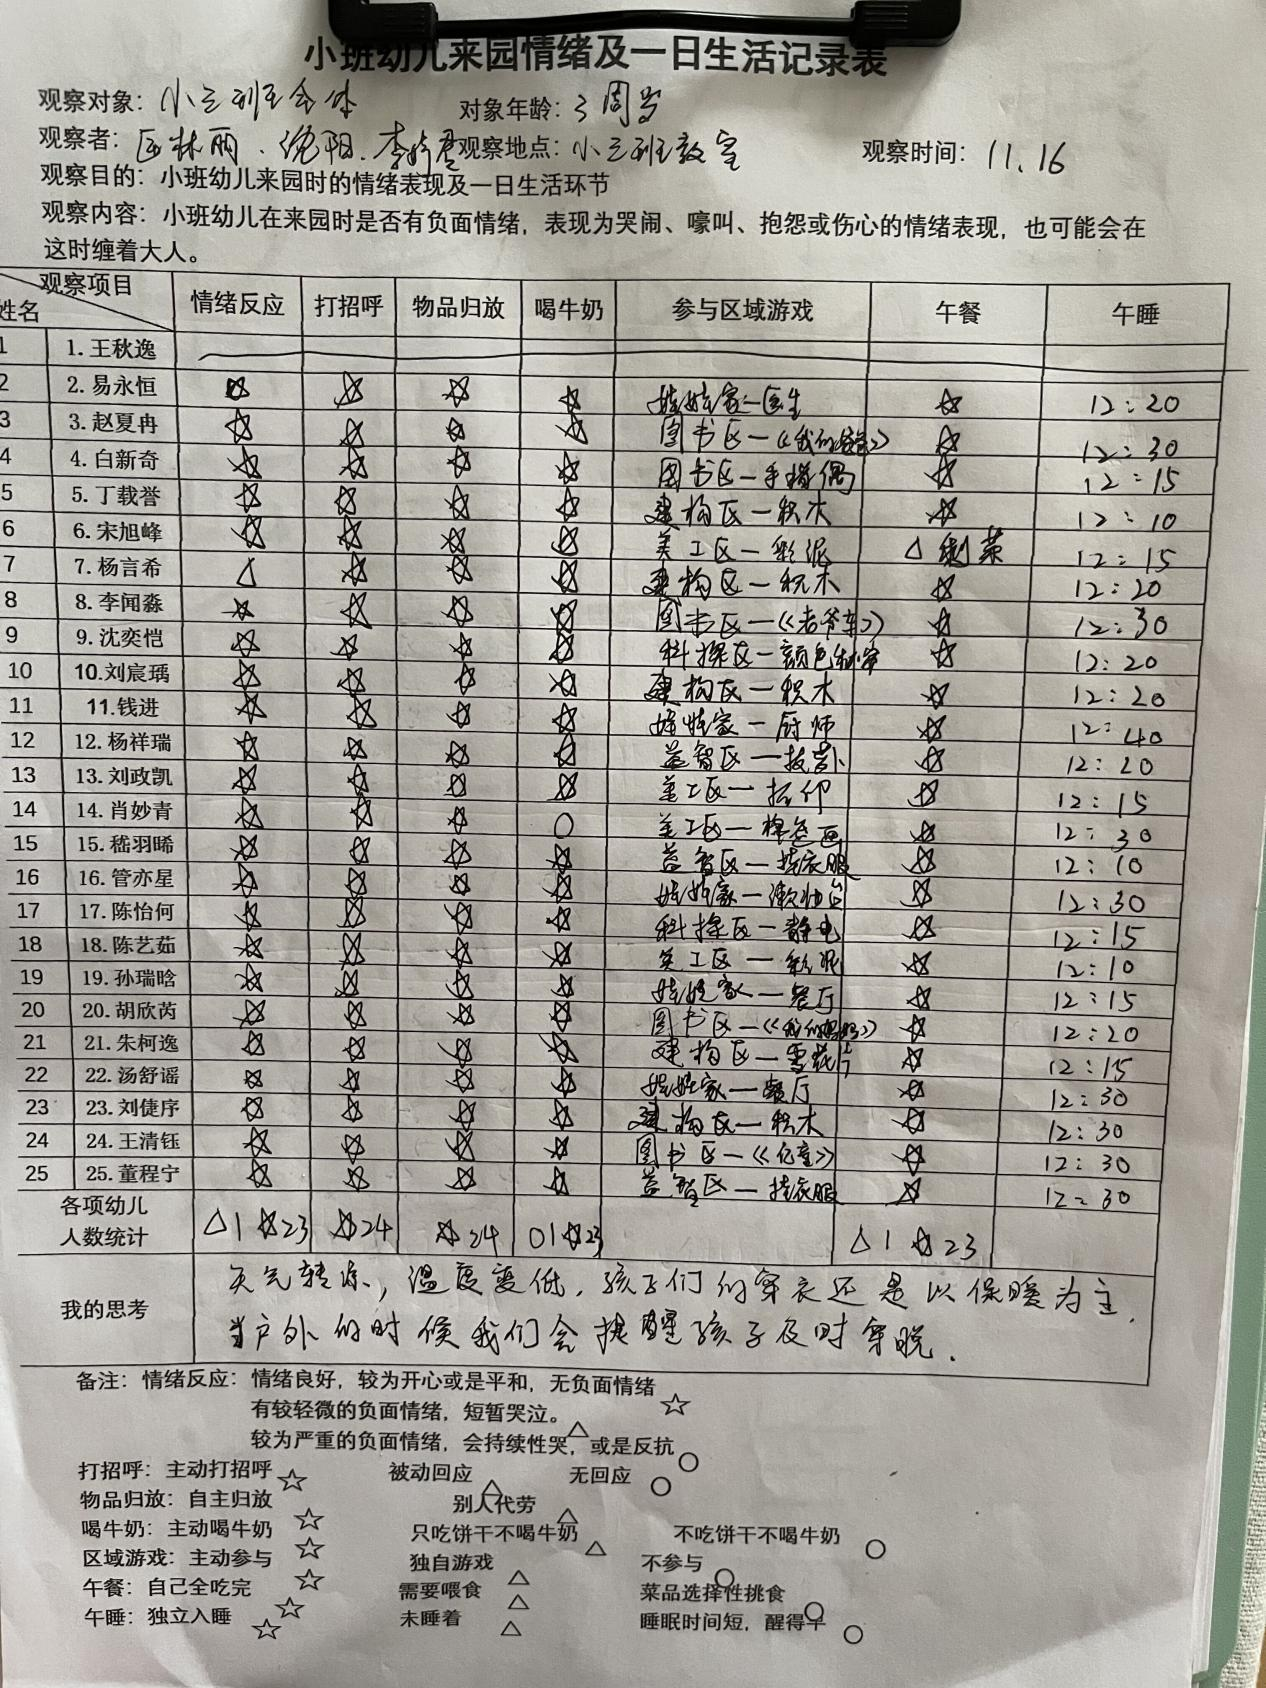 小班幼儿来园情绪及一日生活记录表
观察对象：小三班全体 对象年龄：3周岁
观察者：区林丽、倪阳、李 观察地点：小三班教室 观察时间：11.16
观察目的：小班幼儿来园时的情绪表现及一日生活环节
观察内容：小班幼儿在来园时是否有负面情绪，表现为哭闹、嚎叫、抱怨或伤心的情绪表现，也可能会在
这时缠着大人。
观察项目 姓名 情绪反应 打招呼 物品归放 喝牛奶 参与区域游戏 午餐 午睡
1 1.王秋逸
2 2.易永恒 ☆ ☆ ☆ ☆ 娃娃家—医生 ☆ 12:20
3 3.赵夏冉 ☆ ☆ ☆ ☆ 图书区—《我的爸爸》 ☆ 12:30
4 4.白新奇 ☆ ☆ ☆ ☆ 图书区—手指偶 ☆ 12:15
5 5.丁载誉 ☆ ☆ ☆ ☆ 建构区—积木 ☆ 12:10
6 6.宋旭峰 ☆ ☆ ☆ ☆ 美工区—彩泥 △剩菜 12:15
7 7.杨言希 △ ☆ ☆ ☆ 建构区—积木 ☆ 12:20
8 8.李闻淼 ☆ ☆ ☆ ☆ 图书区—《老爷车》 ☆ 12:30
9 9.沈奕恺 ☆ ☆ ☆ ☆ 科探区—颜色 ☆ 12:20
10 10.刘宸瑀 ☆ ☆ ☆ ☆ 建构区—积木 ☆ 12:20
11 11.钱进 ☆ ☆ ☆ ☆ 娃娃家—厨师 ☆ 12:40
12 12.杨祥瑞 ☆ ☆ ☆ ☆ 益智区—拔萝卜 ☆ 12:20
13 13.刘政凯 ☆ ☆ ☆ ☆ 美工区—拓印 ☆ 12:15
14 14.肖妙青 ☆ ☆ ☆ ○ 美工区—棉签画 ☆ 12:30
15 15.嵇羽晞 ☆ ☆ ☆ ☆ 益智区—挂衣服 ☆ 12:10
16 16.管亦星 ☆ ☆ ☆ ☆ 娃娃家—梳妆台 ☆ 12:30
17 17.陈怡何 ☆ ☆ ☆ ☆ 科探区—静电 ☆ 12:15
18 18.陈艺茹 ☆ ☆ ☆ ☆ 美工区—彩泥 ☆ 12:10
19 19.孙瑞晗 ☆ ☆ ☆ ☆ 娃娃家—餐厅 ☆ 12:15
20 20.胡欣芮 ☆ ☆ ☆ ☆ 图书区—《我的妈妈》 ☆ 12:20
21 21.朱柯逸 ☆ ☆ ☆ ☆ 建构区—雪花片 ☆ 12:15
22 22.汤舒谣 ☆ ☆ ☆ ☆ 娃娃家—餐厅 ☆ 12:30
23 23.刘倢序 ☆ ☆ ☆ ☆ 建构区—积木 ☆ 12:30
24 24.王清钰 ☆ ☆ ☆ ☆ 图书区— ☆ 12:30
25 25.董程宁 ☆ ☆ ☆ ☆ 益智区—挂衣服 ☆ 12:30
各项幼儿
人数统计 △1 ☆23 ☆24 ☆24 ○1 ☆23 △1 ☆23
我的思考
天气转凉，温度变低，孩子们的穿衣还是以保暖为主，
当户外的时候我们会提醒孩子及时穿脱.
备注：情绪反应：情绪良好，较为开心或是平和，无负面情绪 ☆
有较轻微的负面情绪，短暂哭泣。 △
较为严重的负面情绪，会持续性哭，或是反抗 ○
打招呼：主动打招呼 ☆ 被动回应 △ 无回应 ○
物品归放：自主归放 ☆ 别人代劳 △
喝牛奶：主动喝牛奶 ☆ 只吃饼干不喝牛奶 △ 不吃饼干不喝牛奶 ○
区域游戏：主动参与 ☆ 独自游戏 △ 不参与 ○
午餐：自己全吃完 ☆ 需要喂食 △ 菜品选择性挑食 ○
午睡：独立入睡 ☆ 未睡着 △ 睡眠时间短，醒得早 ○